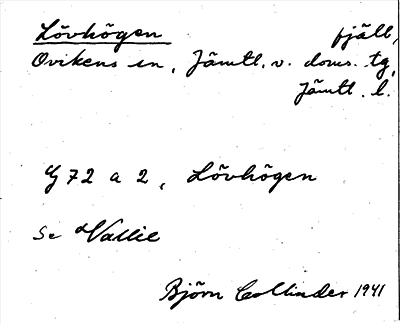 Lövhögen fjäll,
Ovikens sn, Jämtl. v. doms. tg,
Jämtl. l.
G 72 a 2, Lövhögen
Se Vallie
Björn Collinder 1941